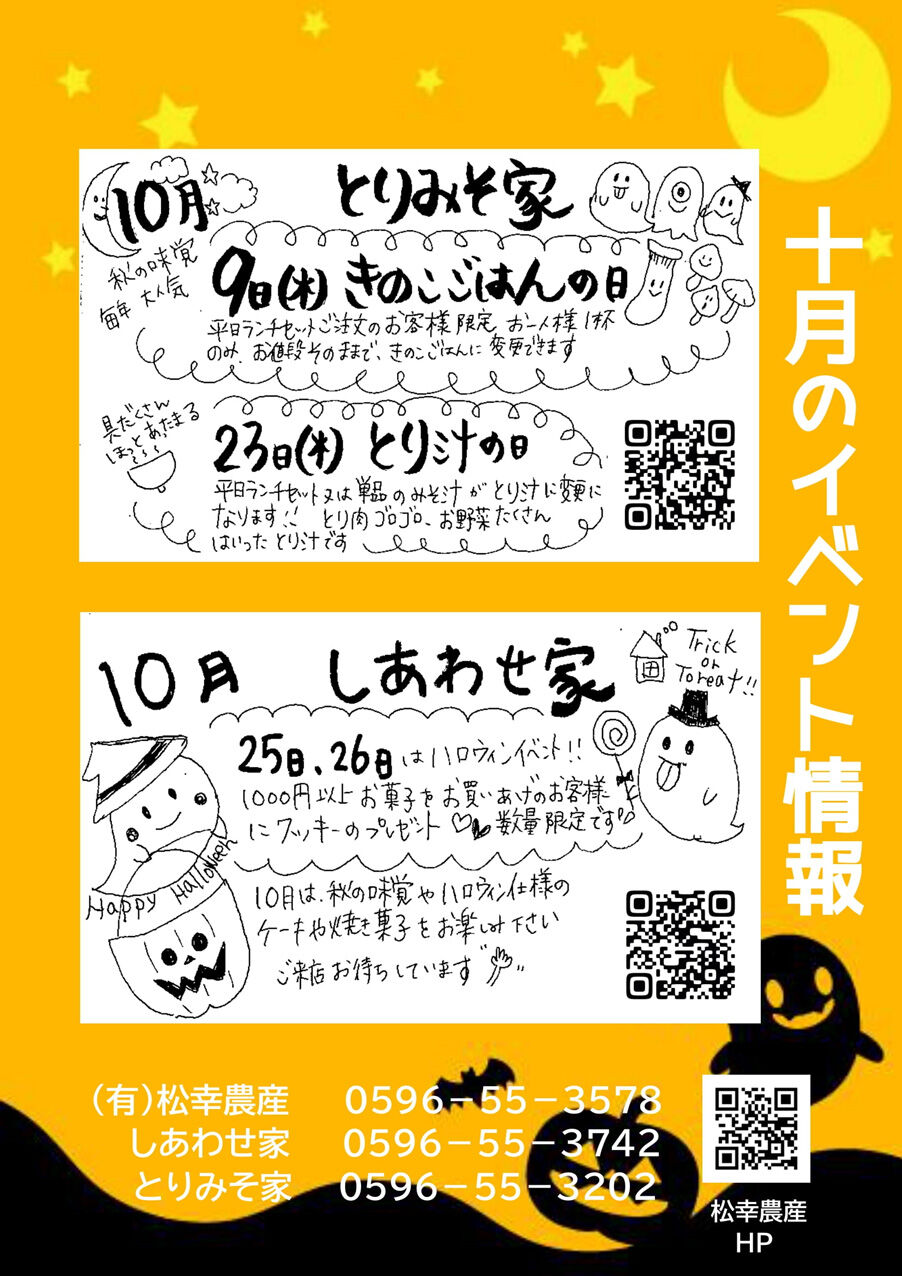 十月のイベント情報
10月
とりみそ家
秋の味覚
毎年 大人気
9日(水) きのこごはんの日
平日ランチセットご注文のお客様限定 お一人様1杯
のみ、お値段そのままで、きのこごはんに変更できます
具だくさん
ほっとあたたまる
23日(水) とり汁の日
平日ランチセット又は単品のみそ汁がとり汁に変更に
なります!! とり肉ゴロゴロ、お野菜たくさん
はいったとり汁です
10月
しあわせ家
Trick
or
Toreat!!
25日、26日はハロウィンイベント!!
1000円以上お菓子をお買いあげのお客様に
にクッキーのプレゼント♡♥数量限定です♡
Happy Halloween
10月は、秋の味覚やハロウィン仕様の
ケーキや焼き菓子をお楽しみ下さい
ご来店お待ちしています
(有)松幸農産 0596-55-3578
しあわせ家 0596-55-3742
とりみそ家 0596-55-3202
松幸農産
HP